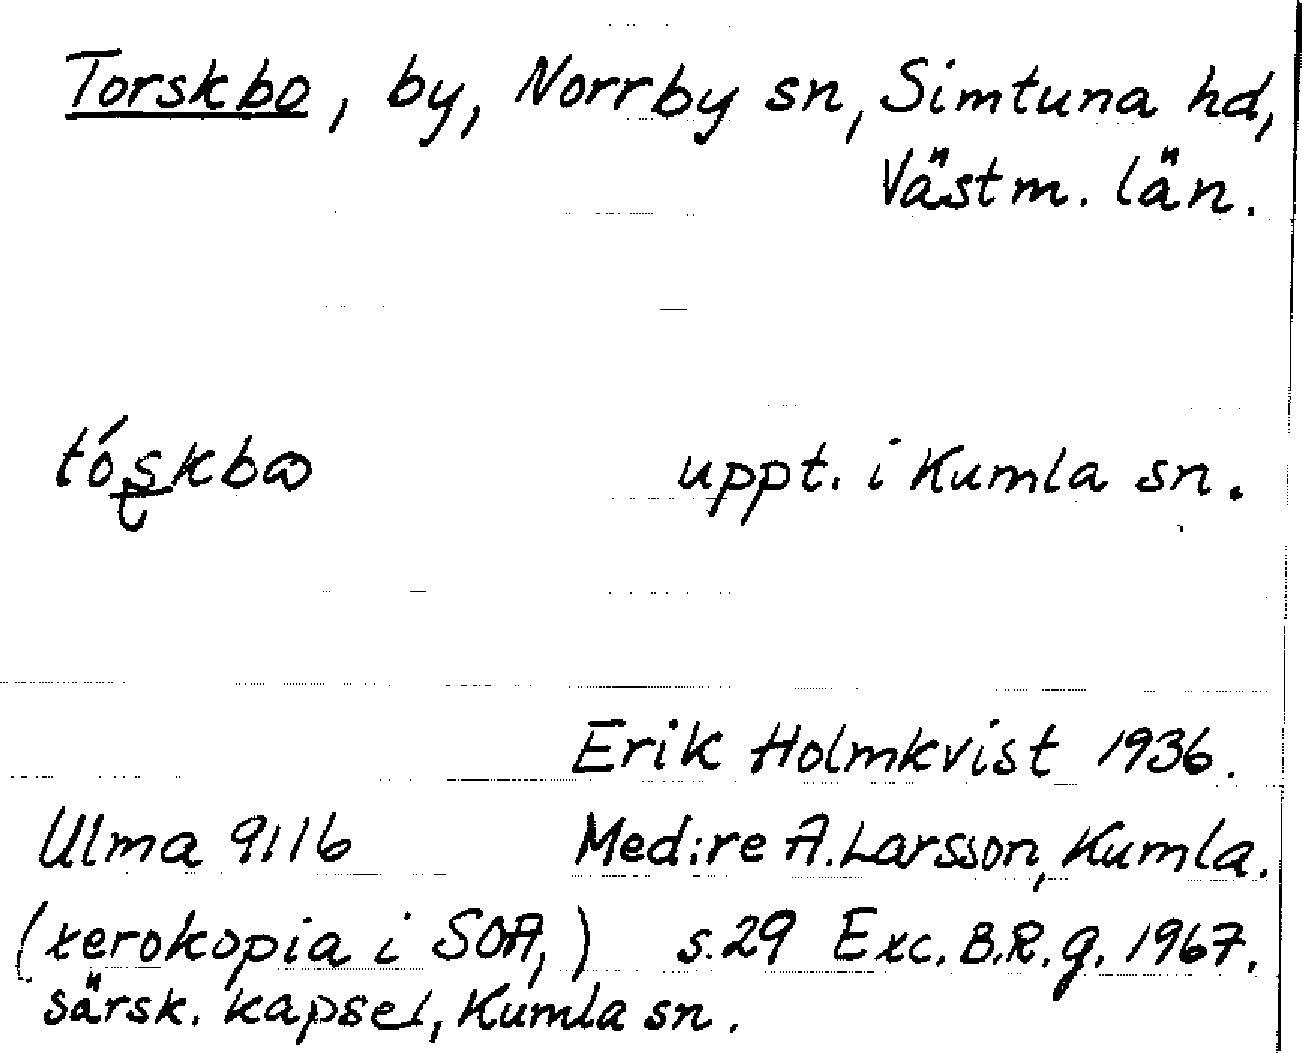 Torskbo, by, Norrby sn, Simtuna hd,
Västm. län.
uppt. i Kumla sn.
Erik Holmkvist 1936.
Ulma 9116 Med:re A. Larsson, Kumla.
(xerokopia i SOA,) s. 29 Exc. B.R.g. 1967.
särsk. kapsel, Kumla sn.